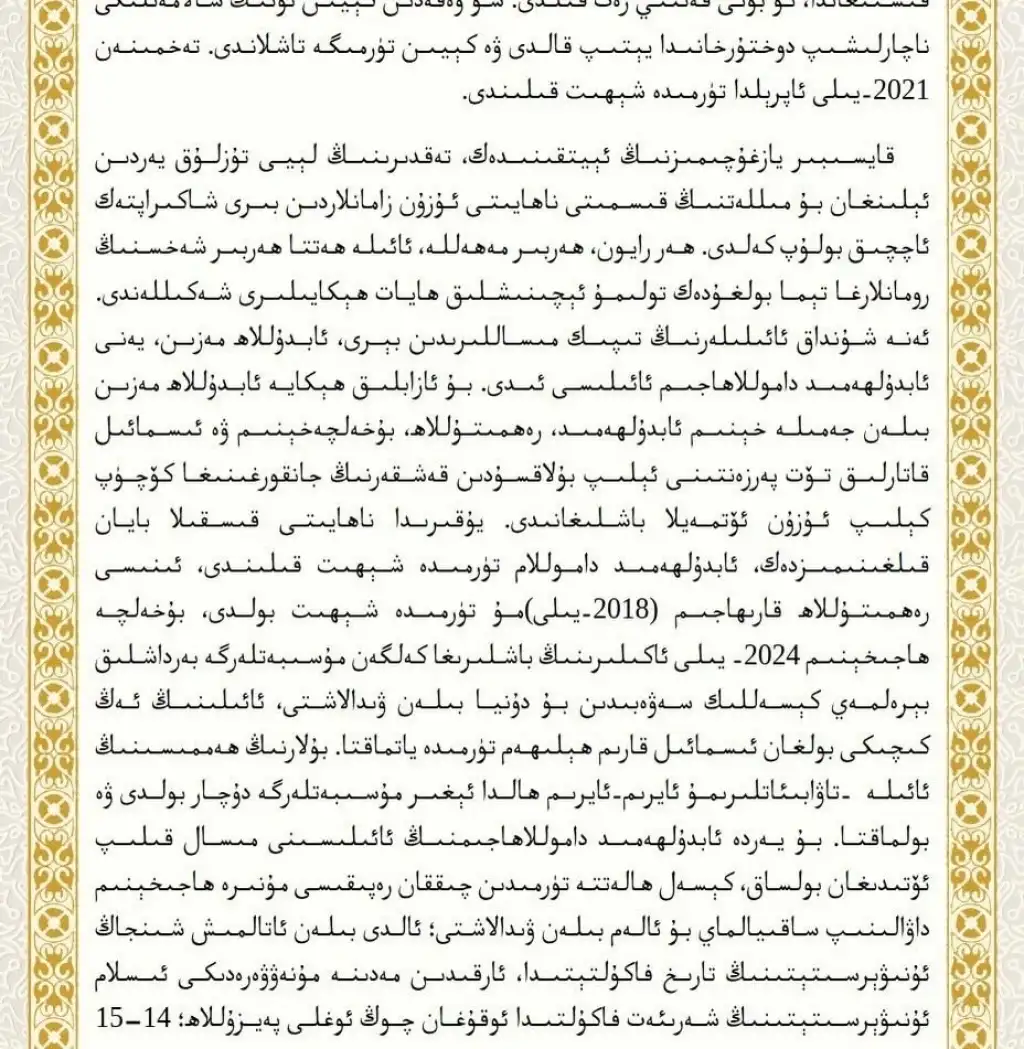 ناچارلىشىپ دوختۇرخانىدا يېتىپ قالدى ۋە كېيىن تۈرمىگە تاشلاندى. تەخمىنەن
2021-يىلى ئاپرېلدا تۈرمىدە شېھىت قىلىندى.
قايسىبىر يازغۇچىمىزنىڭ ئېيتقىنىدەك، تەقدىرىنىڭ لېيى تۇزلۇق يەردىن
ئېلىنغان بۇ مىللەتنىڭ قىسمىتى ناھايىتى ئۇزۇن زامانلاردىن بىرى شاكىراپتەك
ئاچچىق بولۇپ كەلدى. ھەر رايون، ھەربىر مەھەللە، ئائىلە ھەتتا ھەربىر شەخسنىڭ
رومانلارغا تېما بولغۇدەك تولىمۇ ئېچىنىشلىق ھايات ھېكايىلىرى شەكىللەندى.
ئەنە شۇنداق ئائىلىلەرنىڭ تىپىك مىساللىرىدىن بېرى، ئابدۇللاھ مەزىن، يەنى
ئابدۇلھەمىد داموللاھاجىم ئائىلىسى ئىدى. بۇ ئازابلىق ھېكايە ئابدۇللاھ مەزىن
بىلەن جەمىلە خېنىم ئابدۇلھەمىد، رەھمىتۇللاھ، بۇخەلچەخېنىم ۋە ئىسمائىل
قاتارلىق تۆت پەرزەنتىنى ئېلىپ بۇلاقسۇدىن قەشقەرنىڭ جانقورغىنىغا كۆچۈپ
كېلىپ ئۇزۇن ئۆتمەيلا باشلىغانىدى. يۇقىرىدا ناھايىتى قىسقىلا بايان
قىلغىنىمىزدەك، ئابدۇلھەمىد داموللام تۈرمىدە شېھىت قىلىندى، ئىنىسى
رەھمىتۇللاھ قارىھاجىم (2018-يىلى)مۇ تۈرمىدە شېھىت بولدى، بۇخەلچە
ھاجىخېنىم 2024- يىلى ئاكىلىرىنىڭ باشلىرىغا كەلگەن مۇسىبەتلەرگە بەرداشلىق
بېرەلمەي كېسەللىك سەۋەبىدىن بۇ دۇنيا بىلەن ۋىدالاشتى، ئائىلىنىڭ ئەڭ
كىچىكى بولغان ئىسمائىل قارىم ھېلىھەم تۈرمىدە ياتماقتا. بۇلارنىڭ ھەممىسىنىڭ
ئائىلە -تاۋابىئاتلىرىمۇ ئايرىم-ئايرىم ھالدا ئېغىر مۇسىبەتلەرگە دۇچار بولدى ۋە
بولماقتا. بۇ يەردە ئابدۇلھەمىد داموللاھاجىمنىڭ ئائىلىسىنى مىسال قىلىپ
ئۆتىدىغان بولساق، كېسەل ھالەتتە تۈرمىدىن چىققان رەپىقىسى مۇنىرە ھاجىخېنىم
داۋالىنىپ ساقىيالماي بۇ ئالەم بىلەن ۋىدالاشتى؛ ئالدى بىلەن ئاتالمىش شىنجاڭ
ئۇنىۋېرسىتېتىنىڭ تارىخ فاكۇلتېتىدا، ئارقىدىن مەدىنە مۇنەۋۋەرەدىكى ئىسلام
ئۇنىۋېرسىتېتىنىڭ شەرىئەت فاكۇلتىدا ئوقۇغان چوڭ ئوغلى پەيزۇللاھ؛ 14–15